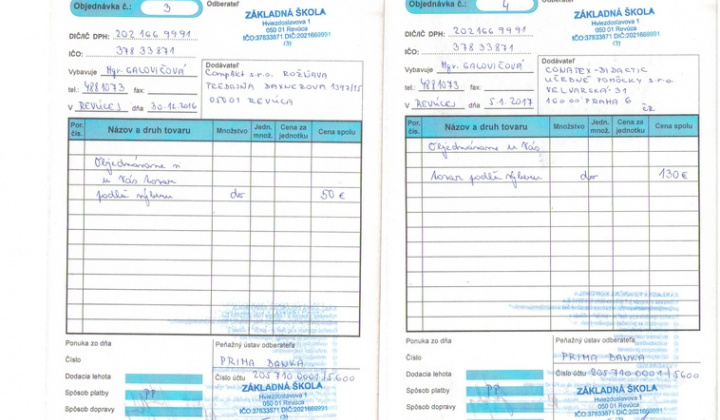 Objednávka č.: 3
Odberateľ
ZÁKLADNÁ ŠKOLA
Hviezdoslavova 1
050 01 Revúca
IČO:37833871 DIČ:2021669991
(3)
DIČ/IČ DPH: 202 166 9991
IČO: 378 33 871
Vybavuje Mgr. GALOVIČOVÁ
tel.: 4881073
V REVÚCEJ dňa 30.12.2016
Dodávateľ
Complet s.r.o. ROŽŇAVA
050 01 REVÚCA
Por. čís. Názov a druh tovaru Množstvo Jedn. množ. Cena za jednotku Cena spolu
Objednávame si
u Vás tovar
podľa výberu do 50 €
Ponuka zo dňa
Číslo
Dodacia lehota
Spôsob platby PP
Spôsob dopravy
Peňažný ústav odberateľa
PRIMA BANKA
Číslo účtu 205 710 0001/5600
ZÁKLADNÁ ŠKOLA
Hviezdoslavova 1
050 01 Revúca
IČO:37833871 DIČ:2021669991
(3)
Objednávka č.: 4
Odberateľ
ZÁKLADNÁ ŠKOLA
Hviezdoslavova 1
050 01 Revúca
IČO:37833871 DIČ:2021669991
(3)
DIČ/IČ DPH: 202 166 9991
IČO: 378 33 871
Vybavuje Mgr. GALOVIČOVÁ
tel.: 4881073
V REVÚCEJ dňa 5.1.2017
Dodávateľ
CONATEX-DIDACTIC
UČEBNÉ POMŮCKY s.r.o.
VELVARSKÁ 31
160 00 PRAHA 6
ČZ
Por. čís. Názov a druh tovaru Množstvo Jedn. množ. Cena za jednotku Cena spolu
Objednávame u Vás
tovar podľa výberu do 130 €
Ponuka zo dňa
Číslo
Dodacia lehota
Spôsob platby PP
Spôsob dopravy
Peňažný ústav odberateľa
PRIMA BANKA
Číslo účtu 205 710 0001/5600
ZÁKLADNÁ ŠKOLA
Hviezdoslavova 1
050 01 Revúca
IČO:37833871 DIČ:2021669991
(3)